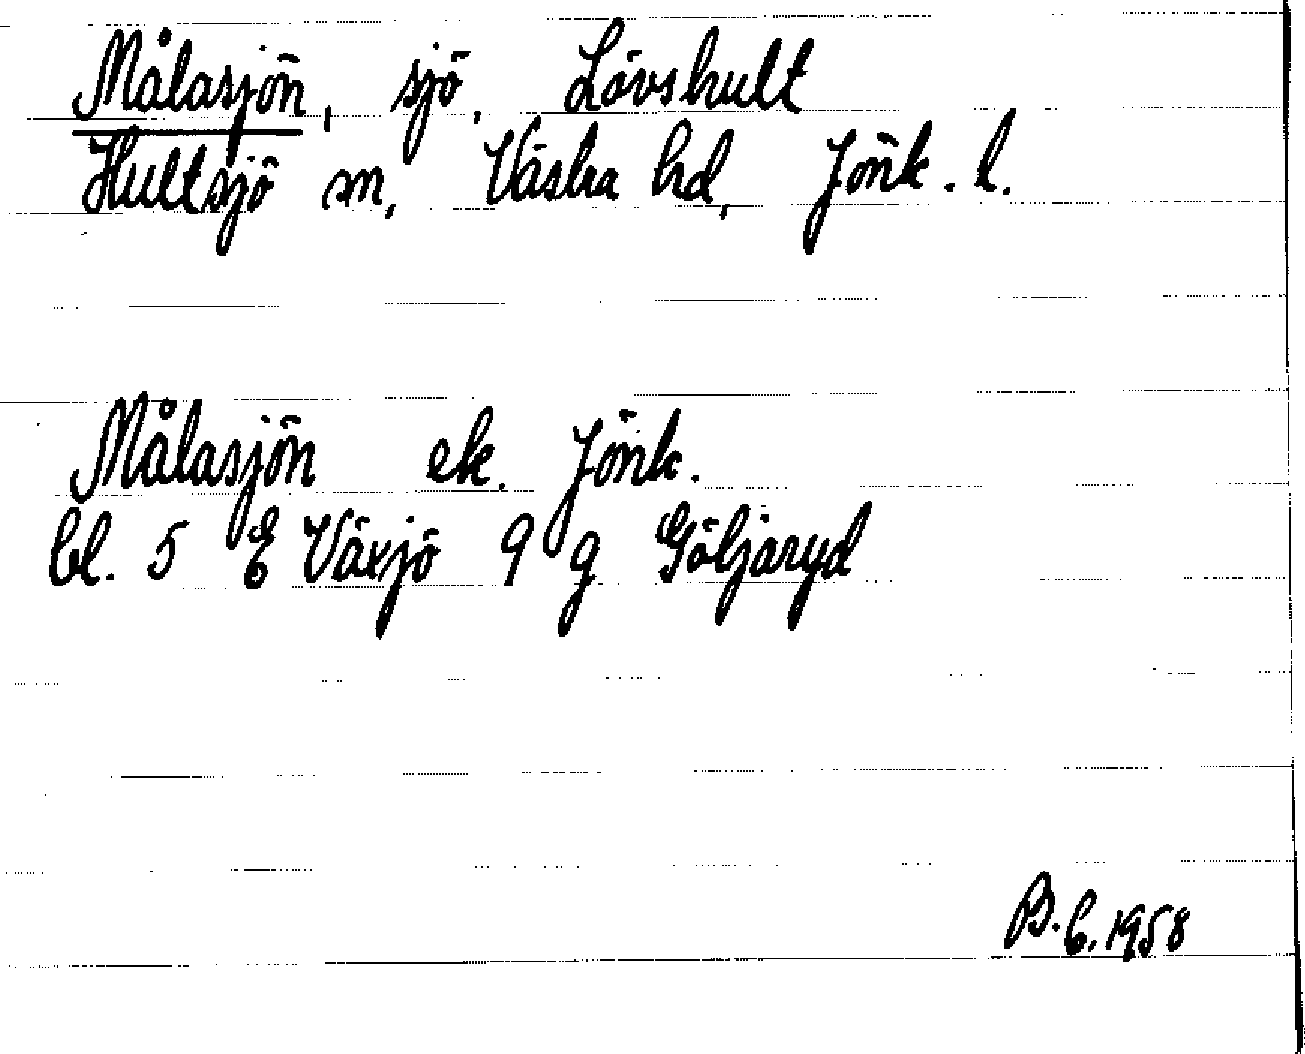 Målasjön, sjö, Lövshult
Hultsjö sn, Västra hd, Jönk. l.
Målasjön ek. Jönk.
bl. 5 E Växjö 9 g Göljaryd
B. b. 1958